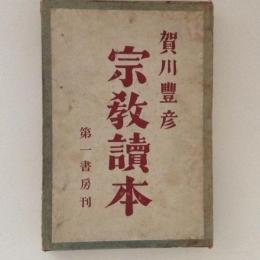 賀川豐彦
宗敎讀本
第一書房刊